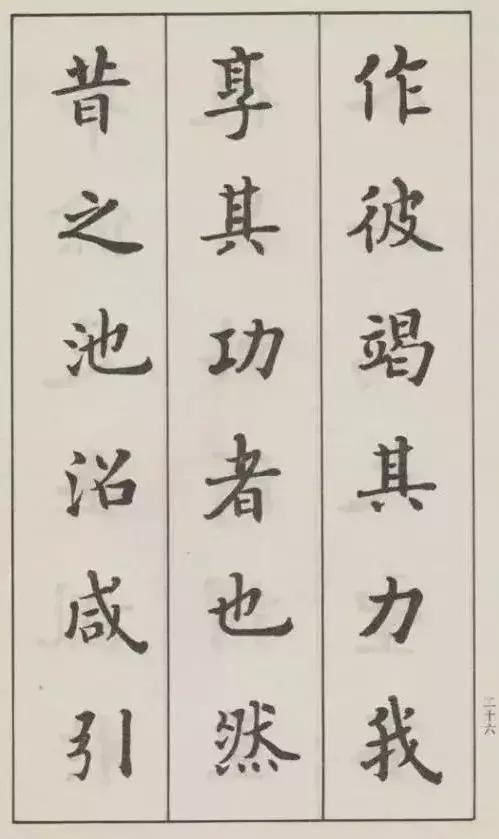 作彼竭其力我
享其功者也然
昔之池沼咸引
二十六